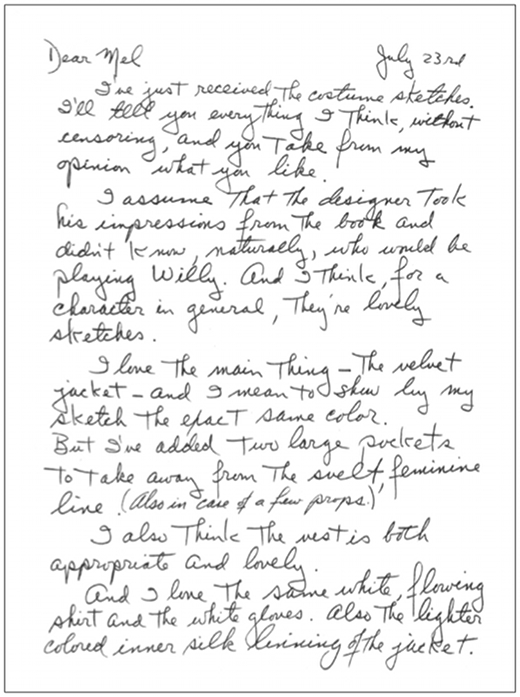 Dear Mel July 23rd
I've just received the costume sketches.
I'll tell you everything I think, without
censoring, and you take from my
opinion what you like.
I assume that the designer took
his impressions from the book and
didn't know, naturally, who would be
playing Willy. And I think, for a
character in general, they're lovely
sketches.
I love the main thing – the velvet
jacket – and I mean to show by my
sketch the exact same color.
But I've added two large pockets
to take away from the svelt, feminine
line. (Also in case of a few props.)
I also think the vest is both
appropriate and lovely.
And I love the same white, flowing
shirt and the white gloves. Also the lighter
colored inner silk linning of the jacket.